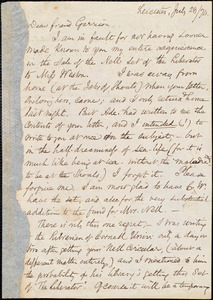 Leicester, July 28/70.
Dear friend Garrison
I am in fault for not having sooner
made known to you my entire acquiescence
in the sale of the Nell set of the Liberator
to Miss Weston. I was away from
home (at the Isles of Shoals) when your letter,
enclosing, came; and I only returned home
last Had written me the
contents of your letter, and I intended to
write to you on the subject - but
in the half dreaminess of sea-life (for it
is much like being at sea, without the
to be at the Shoals) I forgot it. Please
forgive me. I am most glad to have
have the set, and also for the very substantial
addition to the fund for Mrs. Nell.
There is only this one regret. I was writing
the Librarian of Cornell Univ. only a day or
two after getting your Nell Circular, (about a
different matter entirely,) and I mentioned to him
the probability of his library's getting this set
of "The Liberator." Of course it will be a temporary